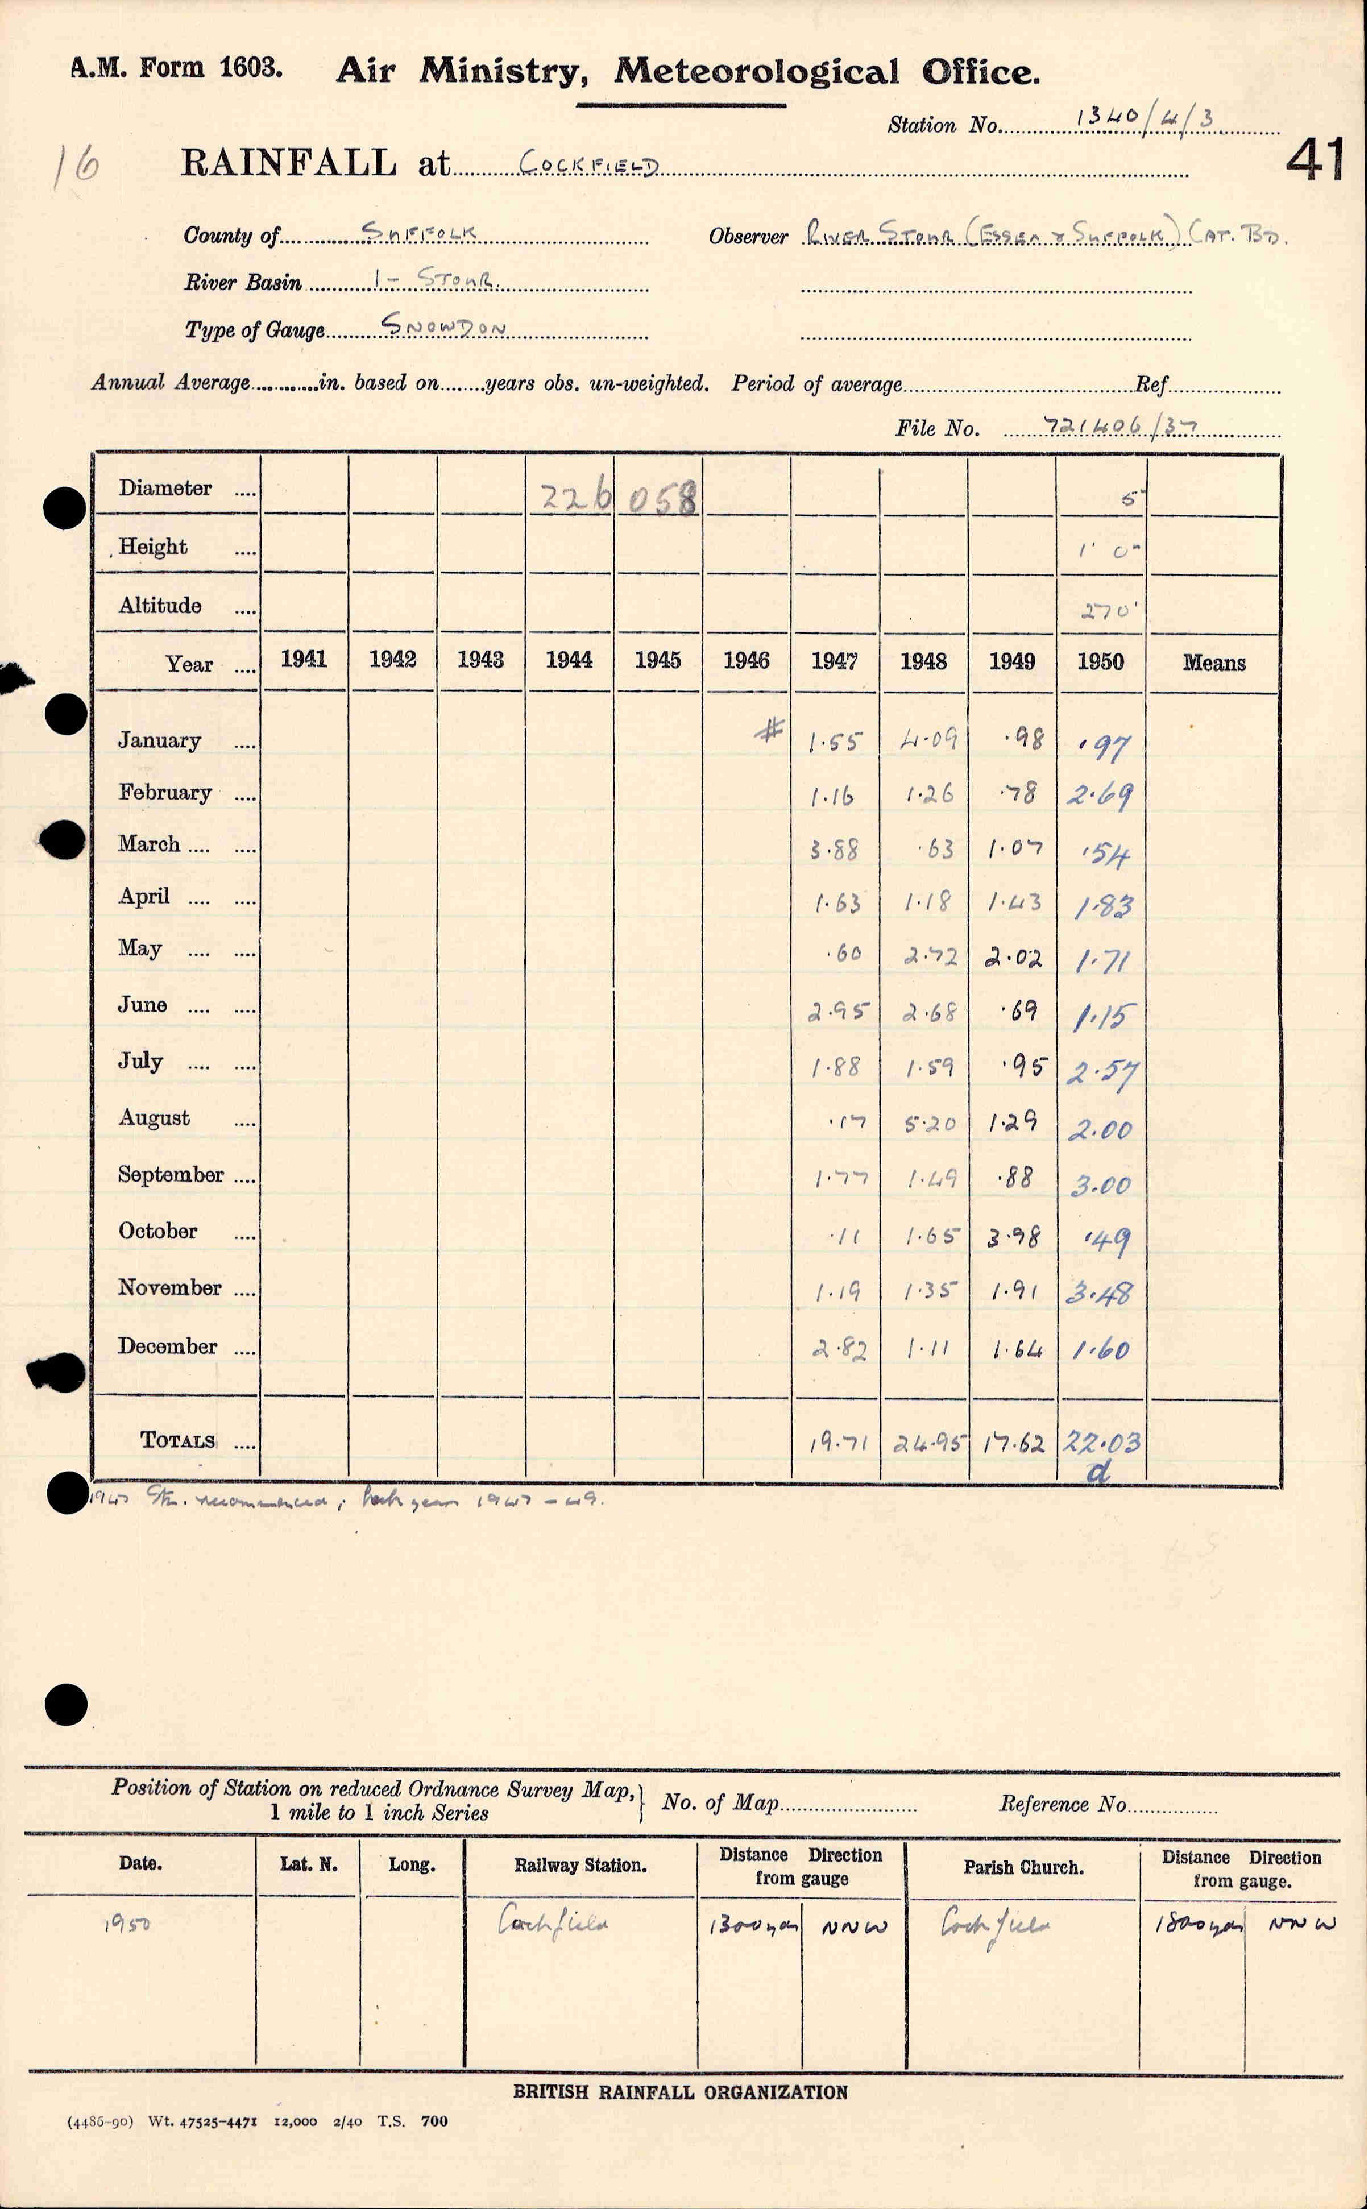 A.M. Form 1603. Air Ministry, Meteorological Office.
Station No. 1340/4/3
16 RAINFALL at COCKFIELD 41
County of SUFFOLK Observer RIVER STOUR (ESSEX & SUFFOLK) CAT. BD.
River Basin 1 - STOUR.
Type of Gauge SNOWDON
Annual Average............in. based on........years obs. un-weighted. Period of average............Ref............
File No. 721406/37
Diameter .... 226 058 5"
Height .... 1' 0"
Altitude .... 270'
Year .... 1941 1942 1943 1944 1945 1946 1947 1948 1949 1950 Means
January .... # 1.55 4.09 .98 .97
February .... 1.16 1.26 .78 2.69
March .... .... 3.88 .63 1.07 .54
April .... .... 1.63 1.18 1.43 1.83
May .... .... .60 2.72 2.02 1.71
June .... .... 2.95 2.68 .69 1.15
July .... .... 1.88 1.59 .95 2.57
August .... .17 5.20 1.29 2.00
September .... 1.77 1.49 .88 3.00
October .... .11 1.65 3.98 .49
November .... 1.19 1.35 1.91 3.48
December .... 2.82 1.11 1.64 1.60
TOTALS .... 19.71 24.95 17.62 22.03
d
1947 Stn. recommenced; back years 1947-49.
Position of Station on reduced Ordnance Survey Map, } No. of Map............ Reference No............
1 mile to 1 inch Series
Date. Lat. N. Long. Railway Station. Distance Direction from gauge Parish Church. Distance Direction from gauge.
1950 Cockfield 1300 yds NNW Cockfield 1800 yds NNW
BRITISH RAINFALL ORGANIZATION
(4486-90) Wt. 47525-4471 12,000 2/40 T.S. 700